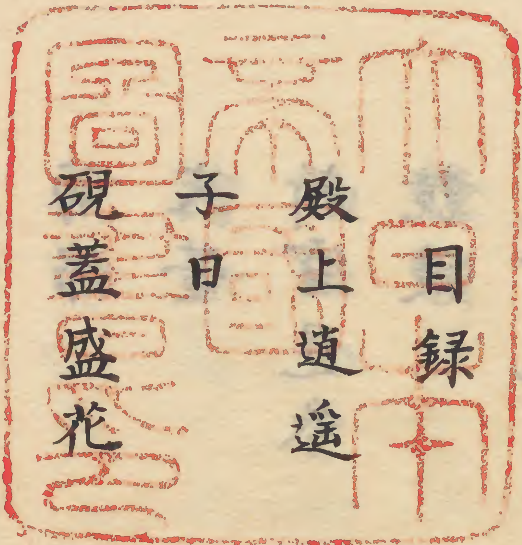 目録
殿上逍遥
子日
硯蓋盛花